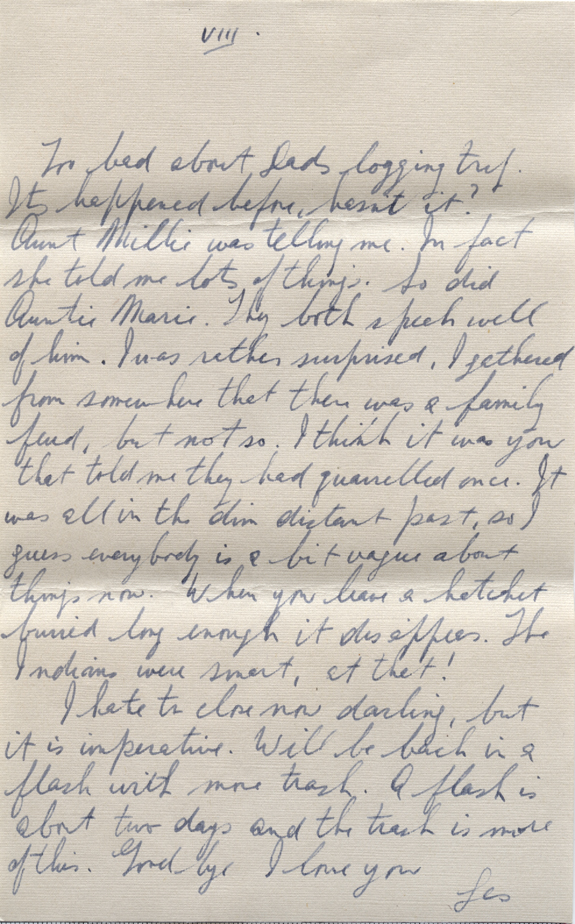 VIII.
Too bad about Dads logging trip.
Its happened before, hasnt it?
Aunt Millie was telling me. In fact
she told me lots of things. So did
Auntie Marie. They both speak well
of him. I was rather surprised, I gathered
from somewhere that there was a family
feud, but not so. I think it was you
that told me they had quarrelled once. It
was all in the dim distant past, so I
guess everybody is a bit vague about
things now. When you leave a hatchet
burried long enough it disappears. The
Indians were smart, at that!
I hate to close now darling, but
it is imperative. Will be back in a
flash with more trash. A flash is
about two days and the trash is more
of this. Good-bye I love you
Les